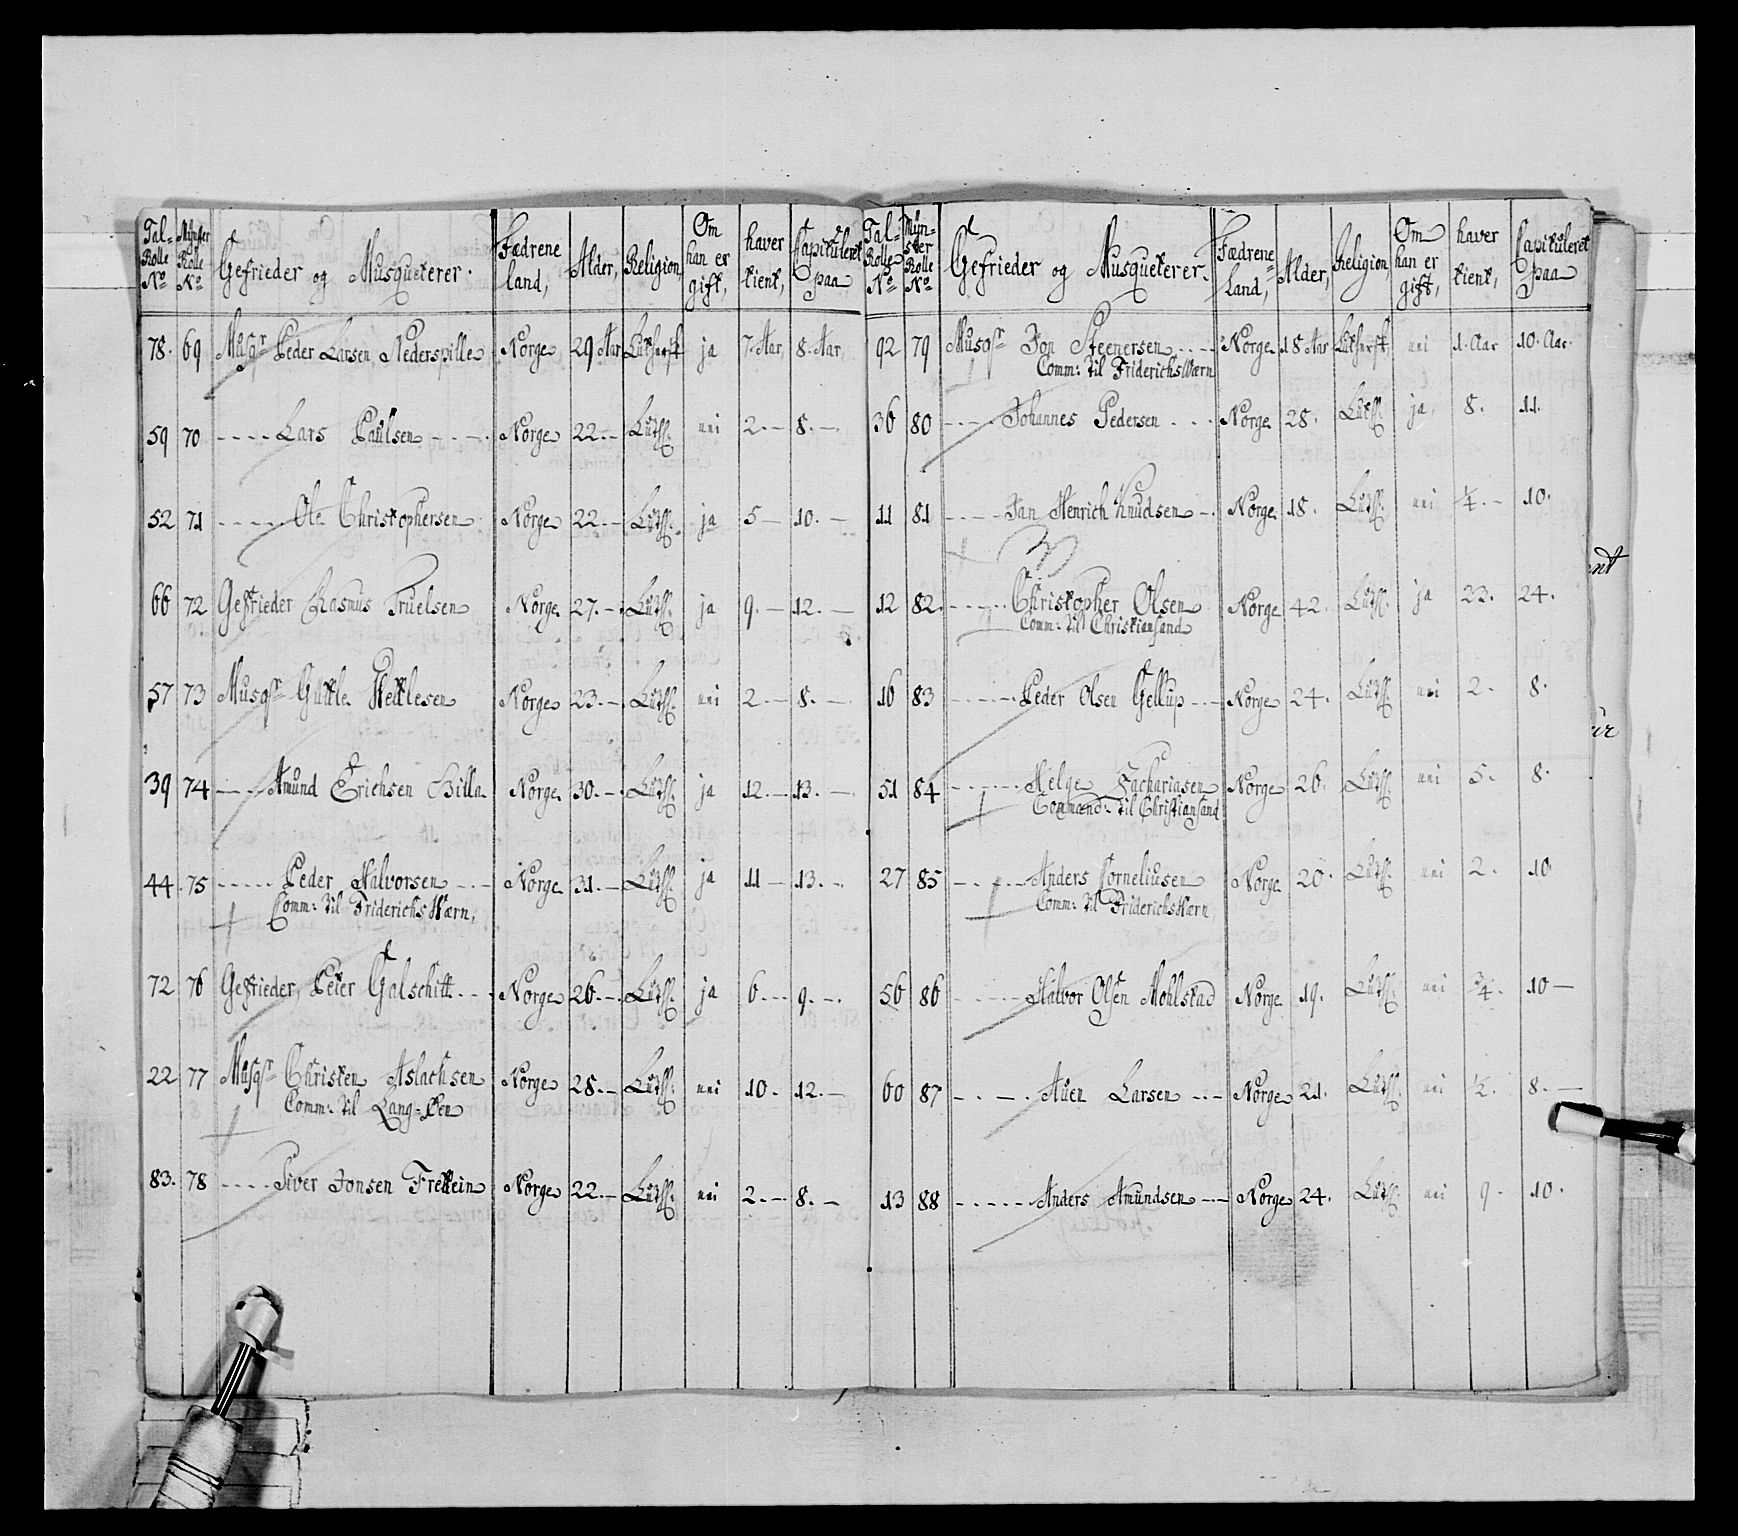 Tal- Rolle No | Mynster Rolle No | Gefrieder og Musqueterer. | Fædrene land, | Alder, | Religion, | Om han er gift, | haver tient, | Capituleret paa
78. 69 Musqr Peder Larsen Nederspille Norge 29 Aar Luthersk ja 7. Aar, 8. Aar,
59 70 ---- Lars Paulsen ---- Norge 22.- Luthſ. nei 2.- 8.-
52 71 ---- Ole Christophersen Norge 22.- Luthſ. ja 5- 10.-
66 72 Gefrieder Rasmus Truelsen Norge 27.- Luthſ. ja 9.- 12.-
57 73 Musqr Guttle Hettlesen Norge 23.- Luthſ. nei 2.- 8.-
39 74 ---- Amund Erichsen Billa Norge 30.- Luthſ. ja 12.- 13.-
44. 75 ---- Peder Halvorsen --- Norge 31.- Luthſ. ja 11- 13.-
Comm: til FriderichsWærn,
72 76 Gefrieder, Peter Galschitt --- Norge 26.- Luthſ. ja 6.-- 9.-
22 77 Musqr Christen Aslachsen Norge 28.- Luthſ. nei 10. 12.-
Comm: til Lang-Øen
83. 78 ---- Siver Jonsen Frettein Norge 22.- Luthſ. nei 2.- 8.-
Tal- Rolle No | Myn- ster Rolle No | Gefrieder og Musqueterer. | Fædrene land, | Alder, | Religion, | Om han er gift, | haver tient, | Capituleret paa
92 79 Musqr Jon Steenersen ---- Norge 18 Aar Luthersk, nei 1. Aar 10. Aar.
Comm: til FriderichsWærn
36 80 ---- Johannes Pedersen --- Norge 28. Luthſ. ja, 8. 11.
11 81 ---- Jan Henrich Knudsen -. Norge 18. Luthſ. nei ¼.- 10.
12 82. ---- Christopher Olsen Norge 42. Luthſ. ja 23. 24.
Comm: til Christiansand
16 83 ---- Peder Olsen Gellup --- Norge 24. Luthſ. nei 2. 8.
51 84 ---- Helge Zachariasen Norge 26. Luthſ. nei 5. 8.
Command: til Christiansand
27 85 ---- Anders Corneliusen Norge 20. Luthſ. nei 2. 10
Comm: til FriderichsWærn
56 86 ---- Halvor Olsen Mohlstad Norge 19. Luthſ. nei ¾. 10-
60 87 ---- Auen Larsen --- Norge 21. Luthſ. nei ½. 8.-
13 88 ---- Anders Amundsen --- Norge 24. Luthſ. nei 9. 10.